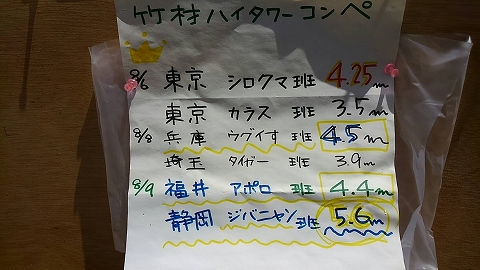 竹材ハイタワーコンペ
8/6 東京 シロクマ班 4.25m
東京 カラス 班 3.5m
8/8 兵庫 ウグイす 班 4.5m
埼玉 タイガー 班 3.9m
8/9 福井 アポロ 班 4.4m
静岡 ジバニャン班 5.6m